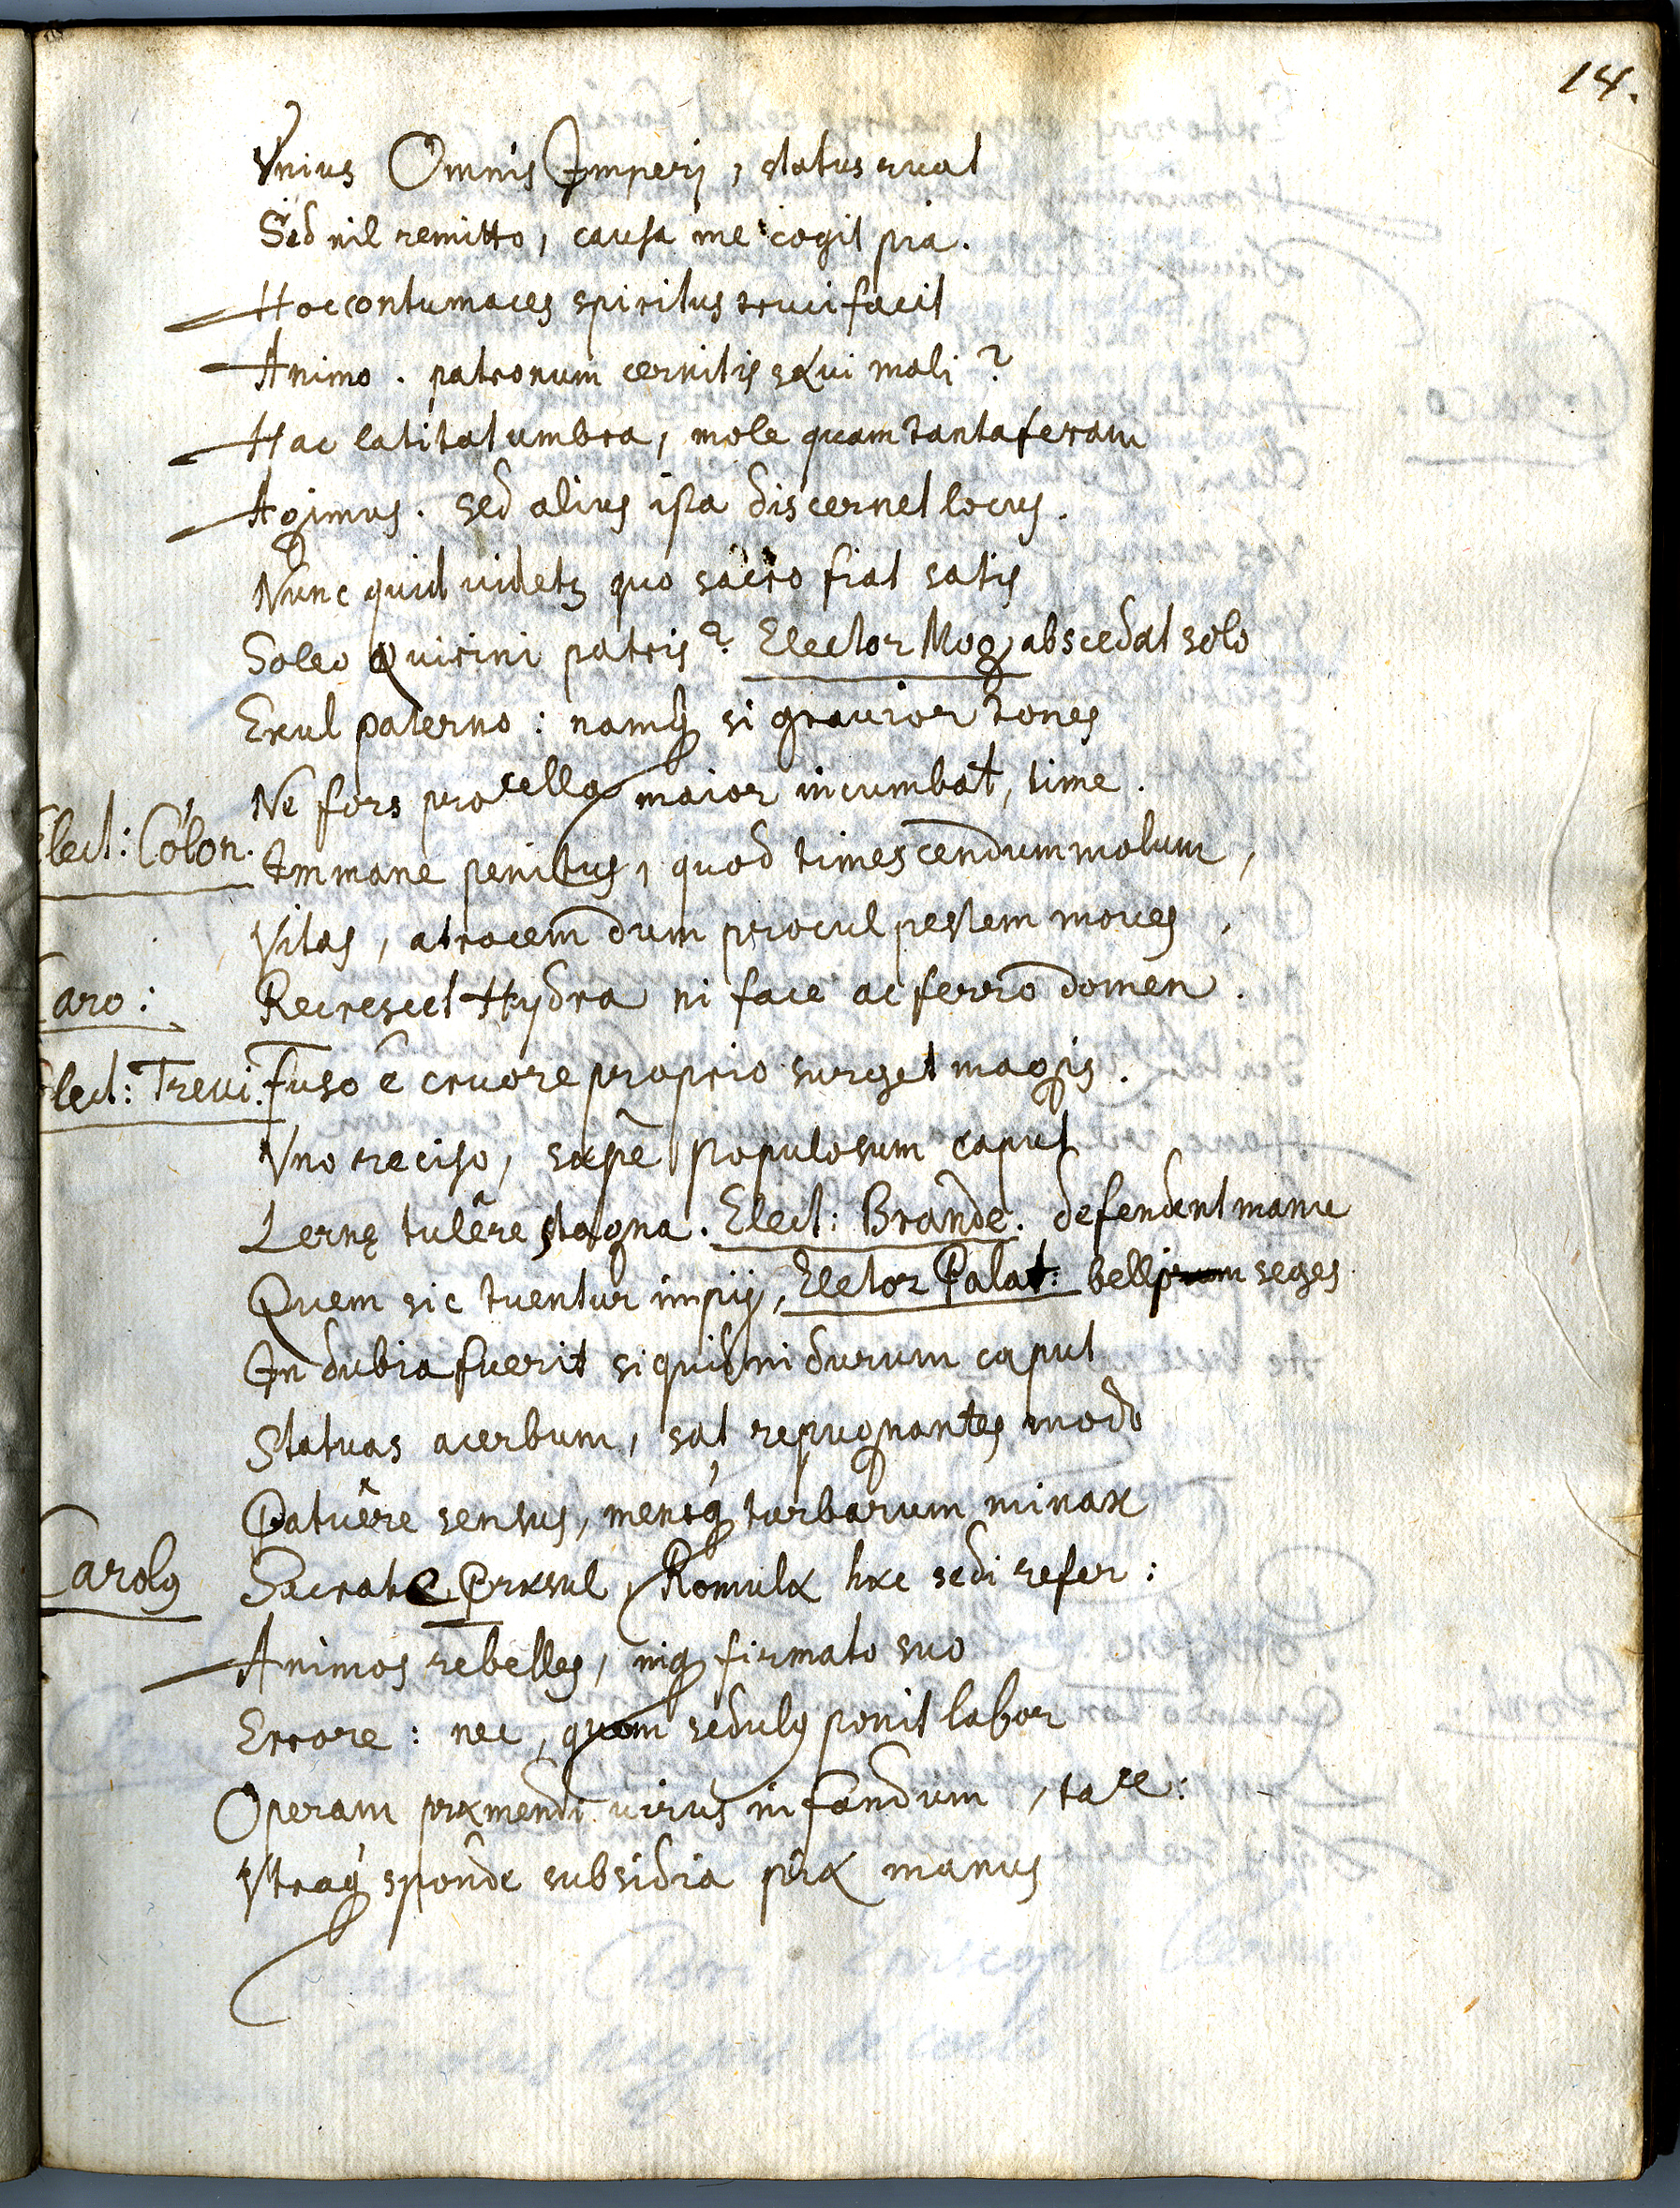 14.
Vnius Omnis Imperij, status ruat
Sed nil remitto, causa me cogit pia.
Hoc contumaces spiritus truci facit
Animo. patronum cernitis sævi mali?
Hac latitat umbra, mole quam tanta feram
Agimus. sed alius ista discernet locus.
Nunc quid videtꝫ quo sacro fiat satis
Soleo Quirini patris? Elector Mog abscedat solo
Exul paterno: namq si gravior tones
Ne fors procella maior incumbat, time.
Elect: Colon. Immane penitus, quod timescendum malum,
Vitas, atrocem dum procul pestem moves,
Caro: Recrescet Hydra ni face ac ferro domen.
Elect: Trevi. fuso e cruore proprio surget magis.
Vno reciso, sæpe populosum caput
Lernę tulêre stagna. Elect: Brande. defendent manu
Quem sic tuentur impij, Elector Palat: belli seges
In dubia fuerit siquid ni durum caput
Statuas acerbum, sat repugnantes modo
Patuêre sensus, mensq turbarum minax
Carolꝰ Sacrate Præsul, Romulæ hæc sedi refer:
Animos rebelles, niq firmato suo
Errore: nec, quam sedulꝰ ponit labor
Operam præmendi virus infandum, tace:
Vtraq sponde subsidia piæ manus